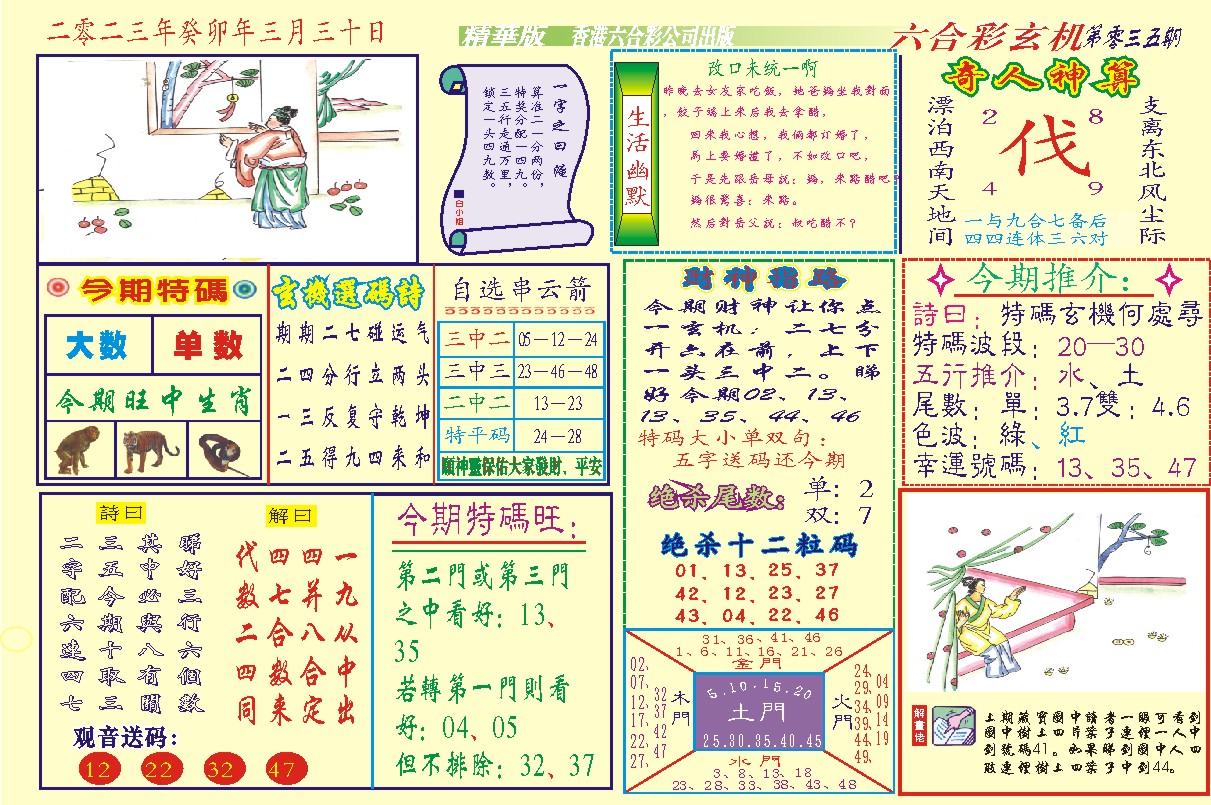 二零二三年癸卯年三月三十日
精華版 香港六合彩公司出版
六合彩玄机第零三五期
一字之曰 隨
算准二一分两份，
特奖分配一四九。
三五行走通万里，
锁定一头四九数。
白小姐
生活幽默
改口未统一啊
昨晚去女友家吃飯，她爸媽坐我對面
，餃子端上来后我去拿醋，
回来我心想，我俩都订婚了，
馬上要婚禮了，不如改口吧，
于是先跟岳母説：媽，来點醋吧？
媽很驚喜：来點。
然后對岳父説：叔吃醋不？
奇人神算
漂泊西南天地间
2 8
伐
4 9
支离东北风尘际
一与九合七备后
四四连体三六对
今期特碼
大数 单数
今期旺中生肖
玄機選碼詩
期期二七碰运气
二四分行立两头
一三反复守乾坤
二五得九四来和
自选串云箭
三中二 05—12—24
三中三 23—46—48
二中二 13—23
特平码 24—28
願神靈保佑大家發財、平安
財神指路
今期财神让你点
一玄机，二七分
开六在前，上下
一头三中二。睇
好今期02、13、
13、35、44、46
特码大小单双句：
五字送码还今期
绝杀尾数：
单：2
双：7
绝杀十二粒码
01、13、25、37
42、12、23、27
43、04、22、46
今期推介：
詩曰：特碼玄機何處尋
特碼波段：20—30
五行推介：水、土
尾數：單：3.7雙：4.6
色波：綠、紅
幸運號碼：13、35、47
詩曰
睇好三行六個數
其中必與有關
三五今期十八取三
二字配六連四七
解曰
一九从中出
四并八合定
四七合数来
代数二四同
观音送码：
12 22 32 47
今期特碼旺：
第二門或第三門
之中看好：13、
35
若轉第一門則看
好：04、05
但不排除：32、37
31、36、41、46
1、6、11、16、21、26
金門
02、07、12、17、22、27、
32、37、42、47
木門
5.10.15.20
土門
25.30.35.40.45
火門
24、29、34、39、44、49、
04、09、14、19
水門
3、8、13、18
23、28、33、38、43、48
解畫佬
上期藏寶圖中讀者一睇可看到
圖中樹上四片葉子連裡一人中
到號碼41。如果睇到圖中人四
肢連裡樹上四葉子中到44。